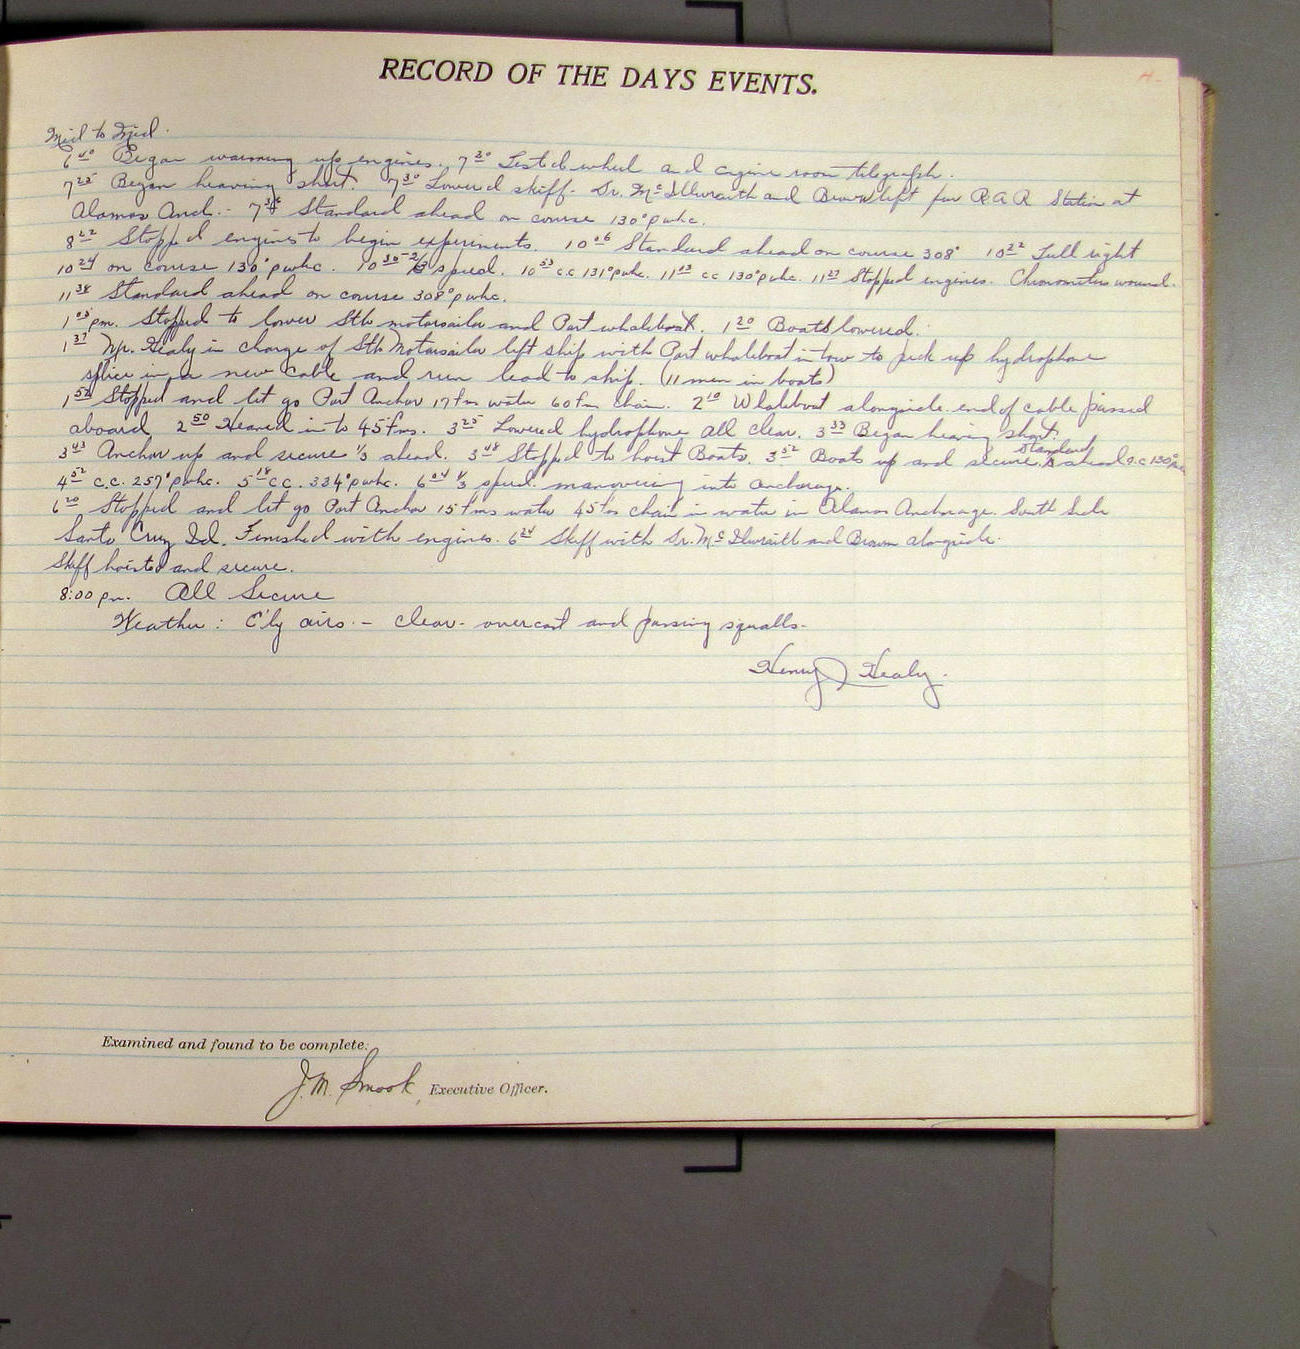 RECORD OF THE DAYS EVENTS.
Mid to Mid.
6 40 Began warming up engines. 7 20 Tested wheel and engine room telegraph.
7 25 Began heaving short. 7 30 Lowered skiff - Dr. McIlwraith and Brown left for R.A.R Station at
Alamos Anch. - 7 Standard ahead on course 130° pwhc.
8 22 Stopped engines to begin experiments. 10 06 Standard ahead on course 308° 10 22 Full right
10 24 on course 130° pwhc. 10 30 - 2/3 speed. 10 53 c.c 131° pwhc. 11 03 cc 130° pwhc. 11 23 Stopped engines. Chronometers wound.
11 38 Standard ahead on course 308° pwhc.
1 05 pm. Stopped to lower Stb motorsailer and Port whaleboat. 1 20 Boats lowered.
1 37 Mr. Healy in charge of Stb Motorsailer left ship with Port whaleboat in tow to pick up hydrophone
splice in a new cable and run lead to ship. (11 men in boats)
1 52 Stopped and let go Port Anchor 17 fms water 60 fm chain. 2 10 Whaleboat alongside. end of cable passed
aboard 2 50 Heaved in to 45 fms. 3 25 Lowered hydrophone all clear. 3 33 Began heaving short.
3 43 Anchor up and secure 1/3 ahead. 3 48 Stopped to hoist Boats. 3 52 Boats up and secure. Standard ahead o.c 130° pwhc
4 52 c.c. 257° pwhc. 5 18 c.c. 334° pwhc. 6 04 1/3 speed. maneuvering into anchorage.
6 20 Stopped and let go Port Anchor 15 fms water 45 fms chain in water in Alamos Anchorage. South Side
Santa Cruz Id. Finished with engines. 6 24 Skiff with Dr. McIlwraith and Brown alongside.
Skiff hoisted and secure.
8:00 pm. All Secure
Weather: E'ly airs. - clear - overcast and passing squalls -
Henry J Healy.
Examined and found to be complete:
J.M. Smook, Executive Officer.